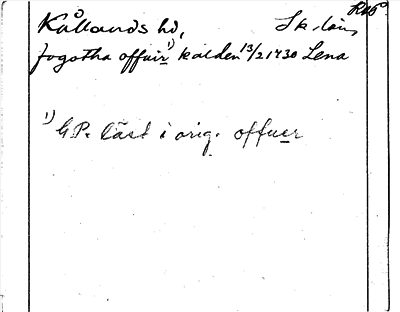 Kållands hd, Sk. län
fogotha offuir 1) kalden 13/2 1430 Lena
1) G.P. läst i orig. offuer